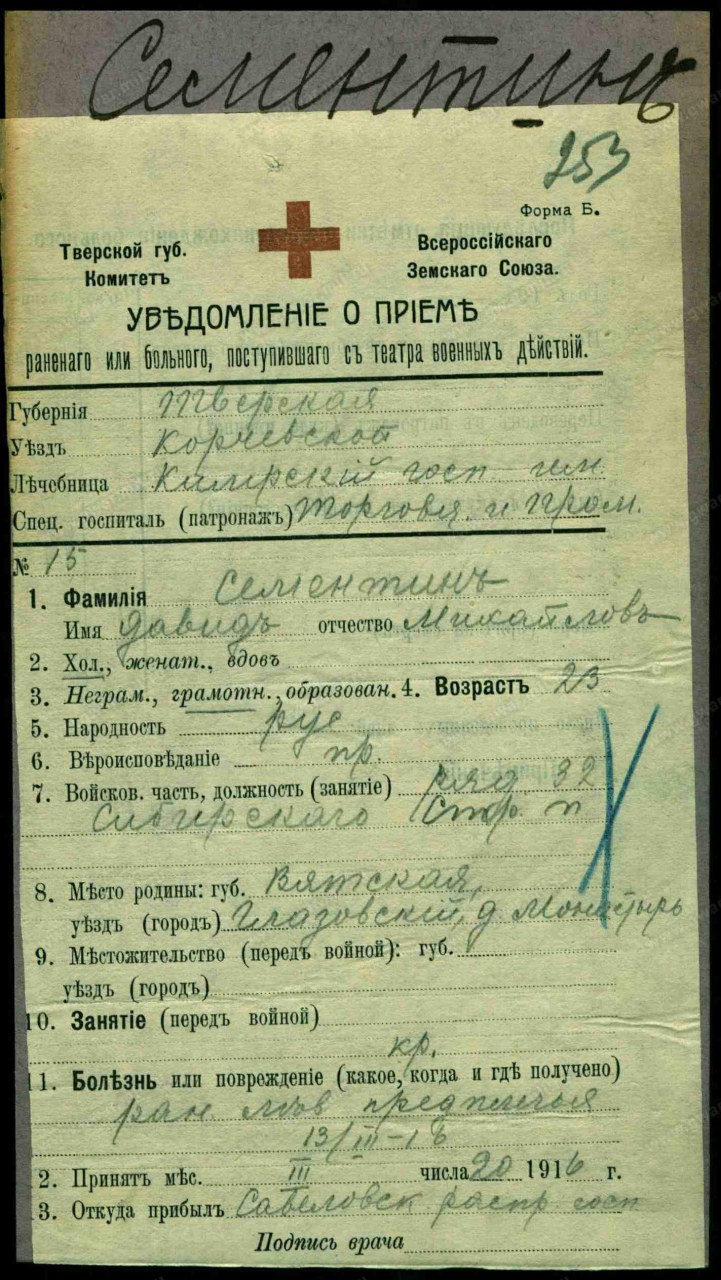 Сементинъ
253
Форма Б.
Тверской губ. Комитетъ
Всероссійскаго Земскаго Союза.
УВѢДОМЛЕНІЕ О ПРІЕМѢ
раненаго или больного, поступившаго съ театра военныхъ дѣйствій.
Губернія Тверская
Уѣздъ Корчевской
Лѣчебница Кимрскій госп
Спец. госпиталь (патронажъ) Торговл. и пром.
№ 15
1. Фамилія Сементинъ
Имя Давидъ отчество Михайловъ
2. Хол., женат., вдовъ
3. Неграм., грамотн., образован. 4. Возрастъ 23
5. Народность рус
6. Вѣроисповѣданіе пр.
7. Войсков. часть, должность (занятіе) ряд 32
Сибирскаго Стр. п
8. Мѣсто родины: губ. Вятская,
уѣздъ (городъ) Глазовскій, д Монастырь
9. Мѣстожительство (передъ войной): губ.
уѣздъ (городъ)
10. Занятіе (передъ войной)
кр.
11. Болѣзнь или поврежденіе (какое, когда и гдѣ получено)
ран лѣв предплечья
13/III-16
2. Принятъ мѣс. III числа 20 1916 г.
3. Откуда прибылъ Савеловск распр госп
Подпись врача